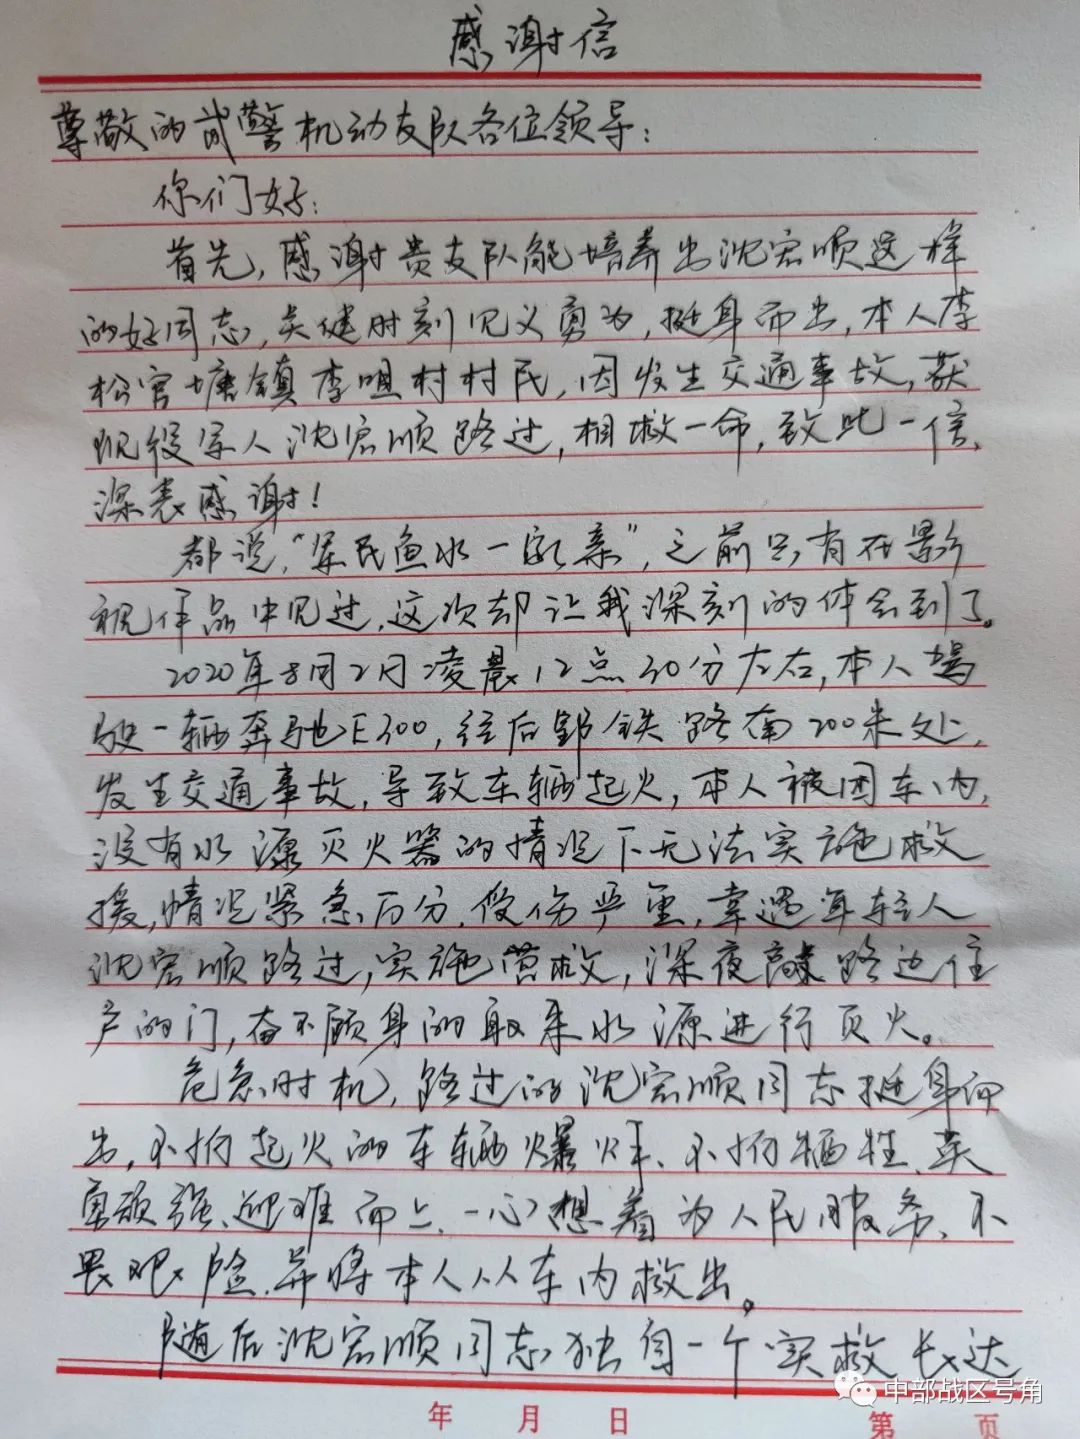 感谢信
尊敬的武警机动支队各位领导:
你们好:
首先,感谢贵支队能培养出沈宏顺这样
的好同志,关键时刻见义勇为,挺身而出,本人李
松官塘镇李咀村村民,因发生交通事故,获
现役军人沈宏顺路过,相救一命,致此一信,
深表感谢!
都说,“军民鱼水一家亲”,之前只有在影
视作品中见过,这次却让我深刻的体会到了。
2020年8月2日凌晨12点30分左右,本人驾
驶一辆奔驰E300,往后郢铁路南200米处,
发生交通事故,导致车辆起火,本人被困车内,
没有水源灭火器的情况下无法实施救
援,情况紧急万分,受伤严重,幸遇年轻人
沈宏顺路过,实施营救,深夜敲路边住
户的门,奋不顾身的取来水源进行灭火。
危急时机,路过的沈宏顺同志挺身而
出,不怕起火的车辆爆炸、不怕牺牲、英
勇顽强、迎难而上、一心想着为人民服务、不
畏艰险,并将本人从车内救出。
随后沈宏顺同志独自一个实救长达
中部战区号角
年 月 日 第 页